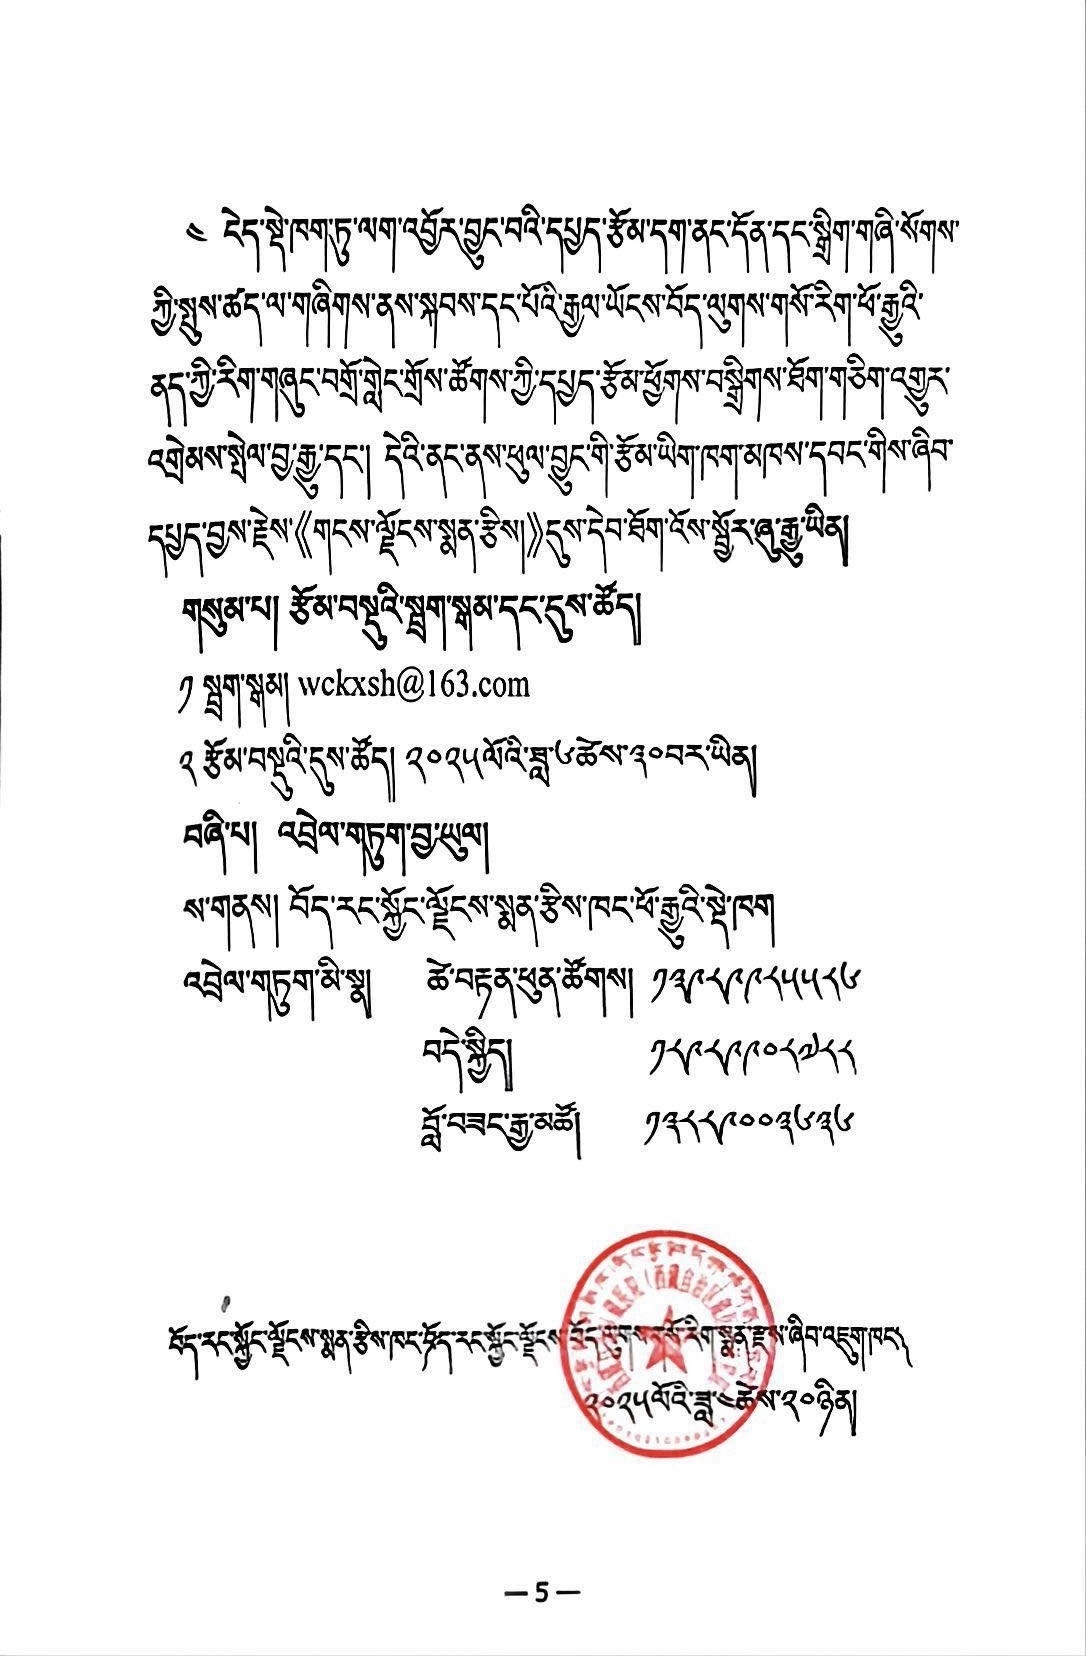 ༤ ངེད་སྡེ་ཁག་ཏུ་ལག་འབྱོར་བྱུང་བའི་དཔྱད་རྩོམ་དག་ནང་དོན་དང་སྒྲིག་གཞི་སོགས་
ཀྱི་སྤུས་ཚད་ལ་གཞིགས་ནས་སྐབས་དང་པོའི་རྒྱལ་ཡོངས་བོད་ལུགས་གསོ་རིག་ཕོ་རྒྱུའི་
ནད་ཀྱི་རིག་གཞུང་བགྲོ་གླེང་གྲོས་ཚོགས་ཀྱི་དཔྱད་རྩོམ་ཕྱོགས་བསྒྲིགས་ཐོག་གཅིག་འགྱུར་
འགྲེམས་སྤེལ་བྱ་རྒྱུ་དང་། དེའི་ནང་ནས་ཕུལ་བྱུང་གི་རྩོམ་ཡིག་ཁག་མཁས་དབང་གིས་ཞིབ་
དཔྱད་བྱས་རྗེས་《གངས་ལྗོངས་སྨན་རྩིས།》དུས་དེབ་ཐོག་འོས་སྦྱོར་ཞུ་རྒྱུ་ཡིན།
གསུམ་པ། རྩོམ་བསྡུའི་སྦྲག་སྒམ་དང་དུས་ཚོད།
༡ སྦྲག་སྒམ། wckxsh@163.com
༢ རྩོམ་བསྡུའི་དུས་ཚོད། ༢༠༢༥ལོའི་ཟླ་༦ཚེས་༣༠བར་ཡིན།
བཞི་པ། འབྲེལ་གཏུག་བྱ་ཡུལ།
ས་གནས། བོད་རང་སྐྱོང་ལྗོངས་སྨན་རྩིས་ཁང་ཕོ་རྒྱུའི་སྡེ་ཁག
འབྲེལ་གཏུག་མི་སྣ། ཚེ་བརྟན་ཕུན་ཚོགས། ༡༣༩༨༩༩༨༥༥༨༦
བདེ་སྐྱིད། ༡༨༩༨༩༩༠༨༧༨༨
བློ་བཟང་རྒྱ་མཚོ། ༡༣༨༨༩༠༠༣༦༣༦
བོད་རང་སྐྱོང་ལྗོངས་སྨན་རྩིས་ཁང་བོད་རང་སྐྱོང་ལྗོངས་བོད་ལུགས་གསོ་རིག་སྨན་རྫས་ཞིབ་འཇུག་ཁང་།
༢༠༢༥ལོའི་ཟླ་༤ཚེས་༢༠ཉིན།
— 5 —